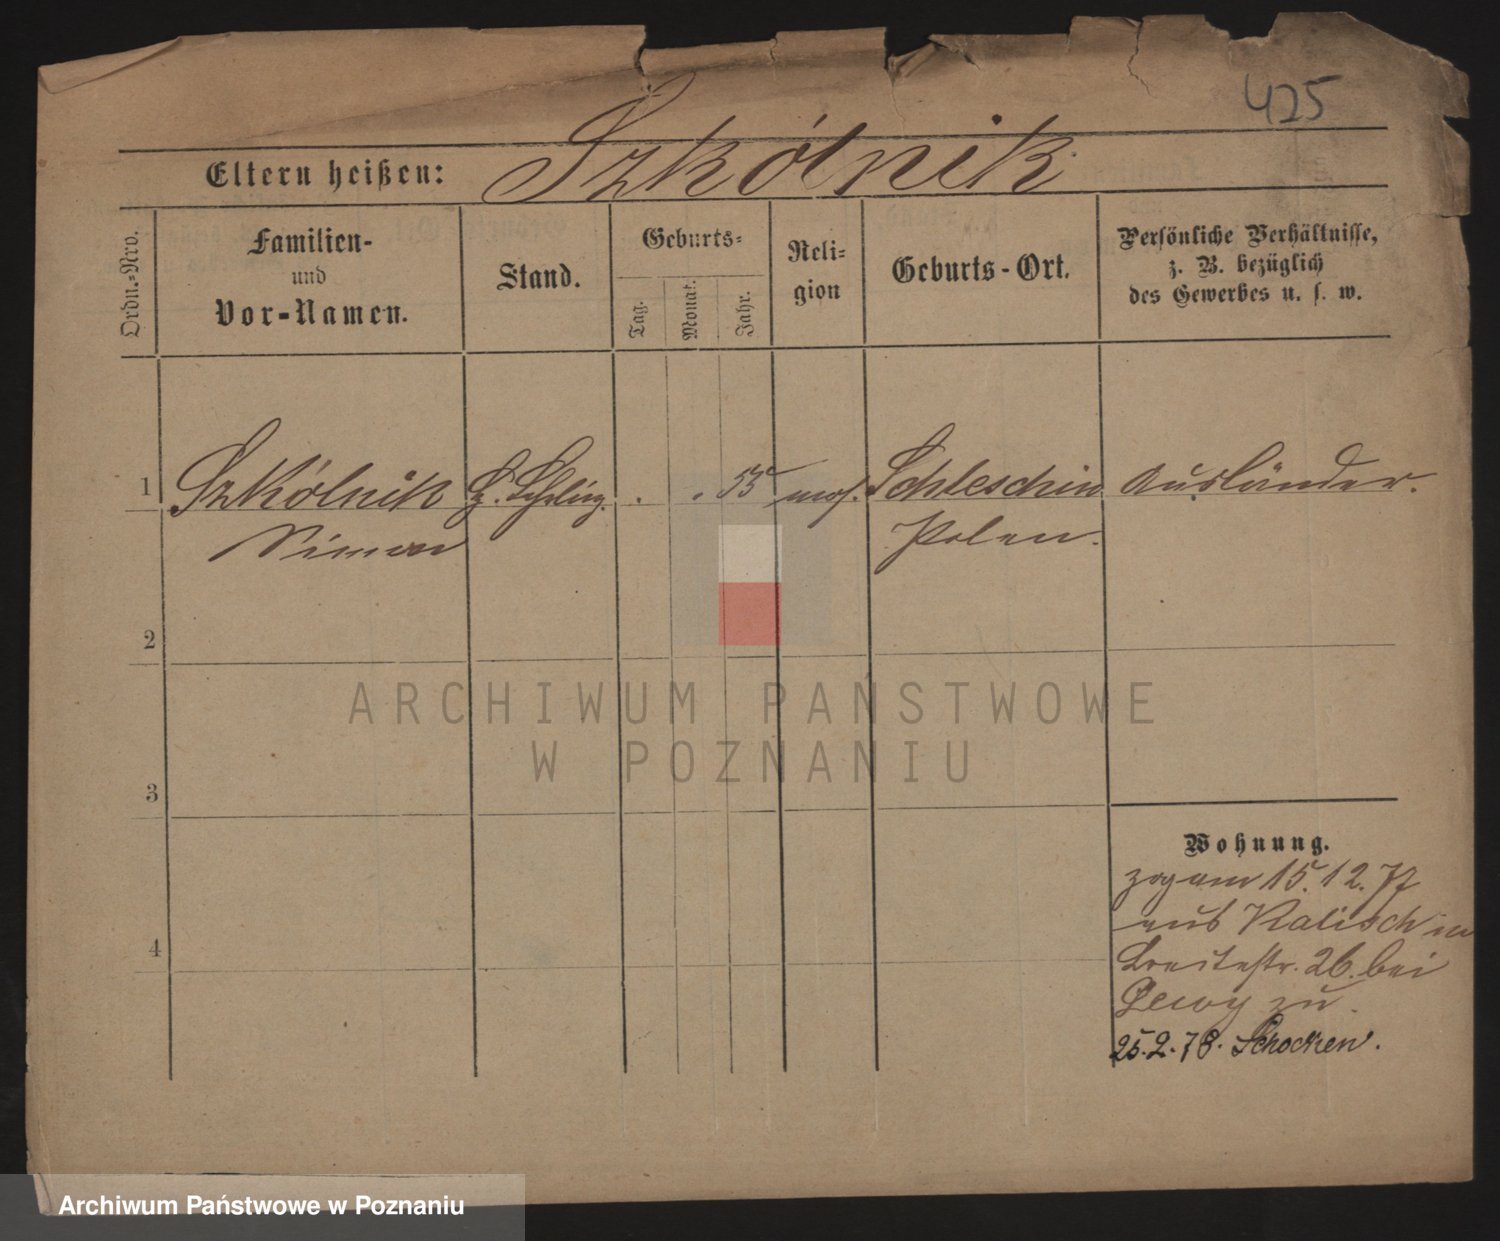 425
Eltern heißen: Szkólnik
Ordn.-Nro.
Familien-
und
Vor-Namen.
Stand.
Geburts-
Tag.
Monat.
Jahr.
Reli-
gion
Geburts-Ort.
Persönliche Verhältnisse,
z. B. bezüglich
des Gewerbes u. s. w.
1 Szkólnik . . 53 mos. Schleschin Ausländer.
Simon Polen.
2
ARCHIWUM PAŃSTWOWE
W POZNANIU
3
Wohnung.
zog am 15.12.77
aus Kalisch in
4
Breitestr. 26. bei
zu.
25.2.78. Schocken.
Archiwum Państwowe w Poznaniu